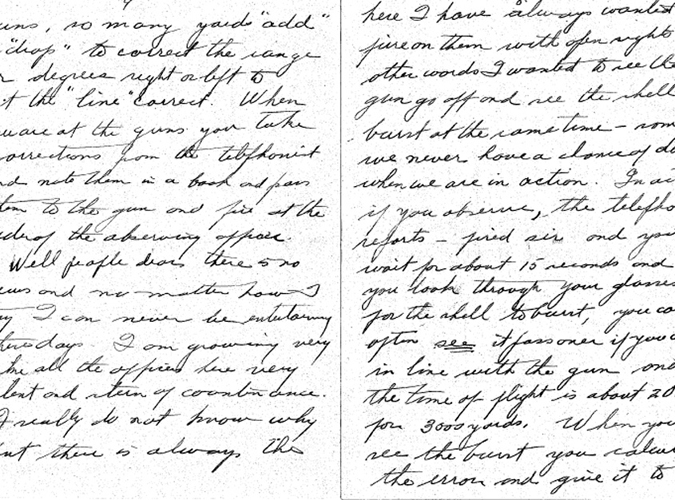 so many yards "add"
"drop" to correct the range
degrees right or left to
the "line" correct. When
are at the guns you take
corrections from the telephonist
and note them in a book and pass
to the gun and fire at the
order of the observing officer.
Well people dear there is no
news and no matter how I
try I can never be entertaining
these days. I am growing very
like all the officers here very
silent and stern of countenance.
I really do not know why
but there is always the
here I have always wanted
fire on them with open sights
other words I wanted to see the
gun go off and see the shell
burst at the same time -
we never have a chance of
when we are in action. In
if you observe, the
reports - fired sir and you
wait for about 15 seconds and
you look through your glasses
for the shell to burst, you
often see it pass over if you
in line with the gun
the time of flight is about 20
for 3000 yards. When you
see the burst you
the error and give it to